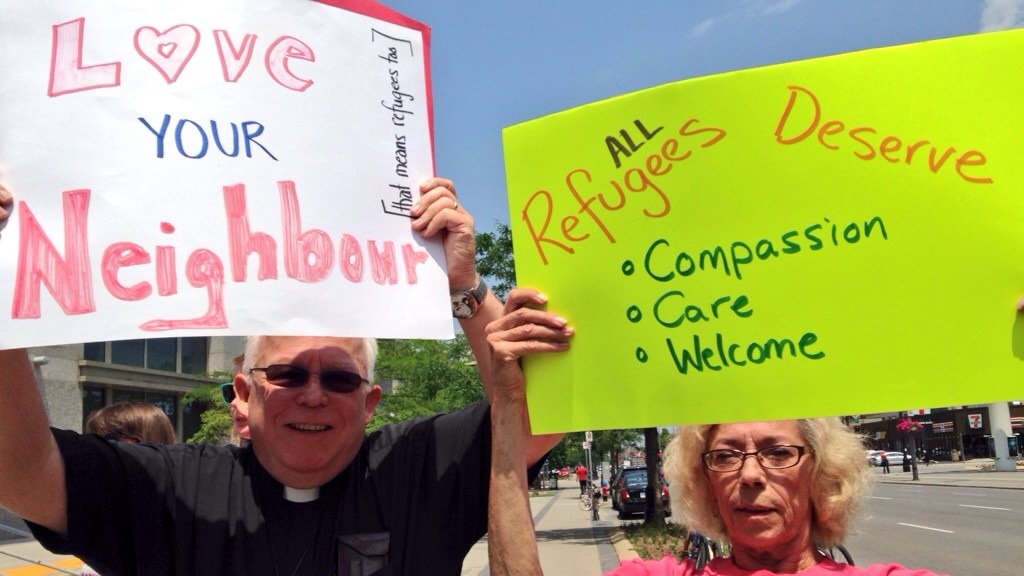 LOVE
YOUR
Neighbour
[that means refugees too]
ALL
Refugees Deserve
• Compassion
• Care
• Welcome
7